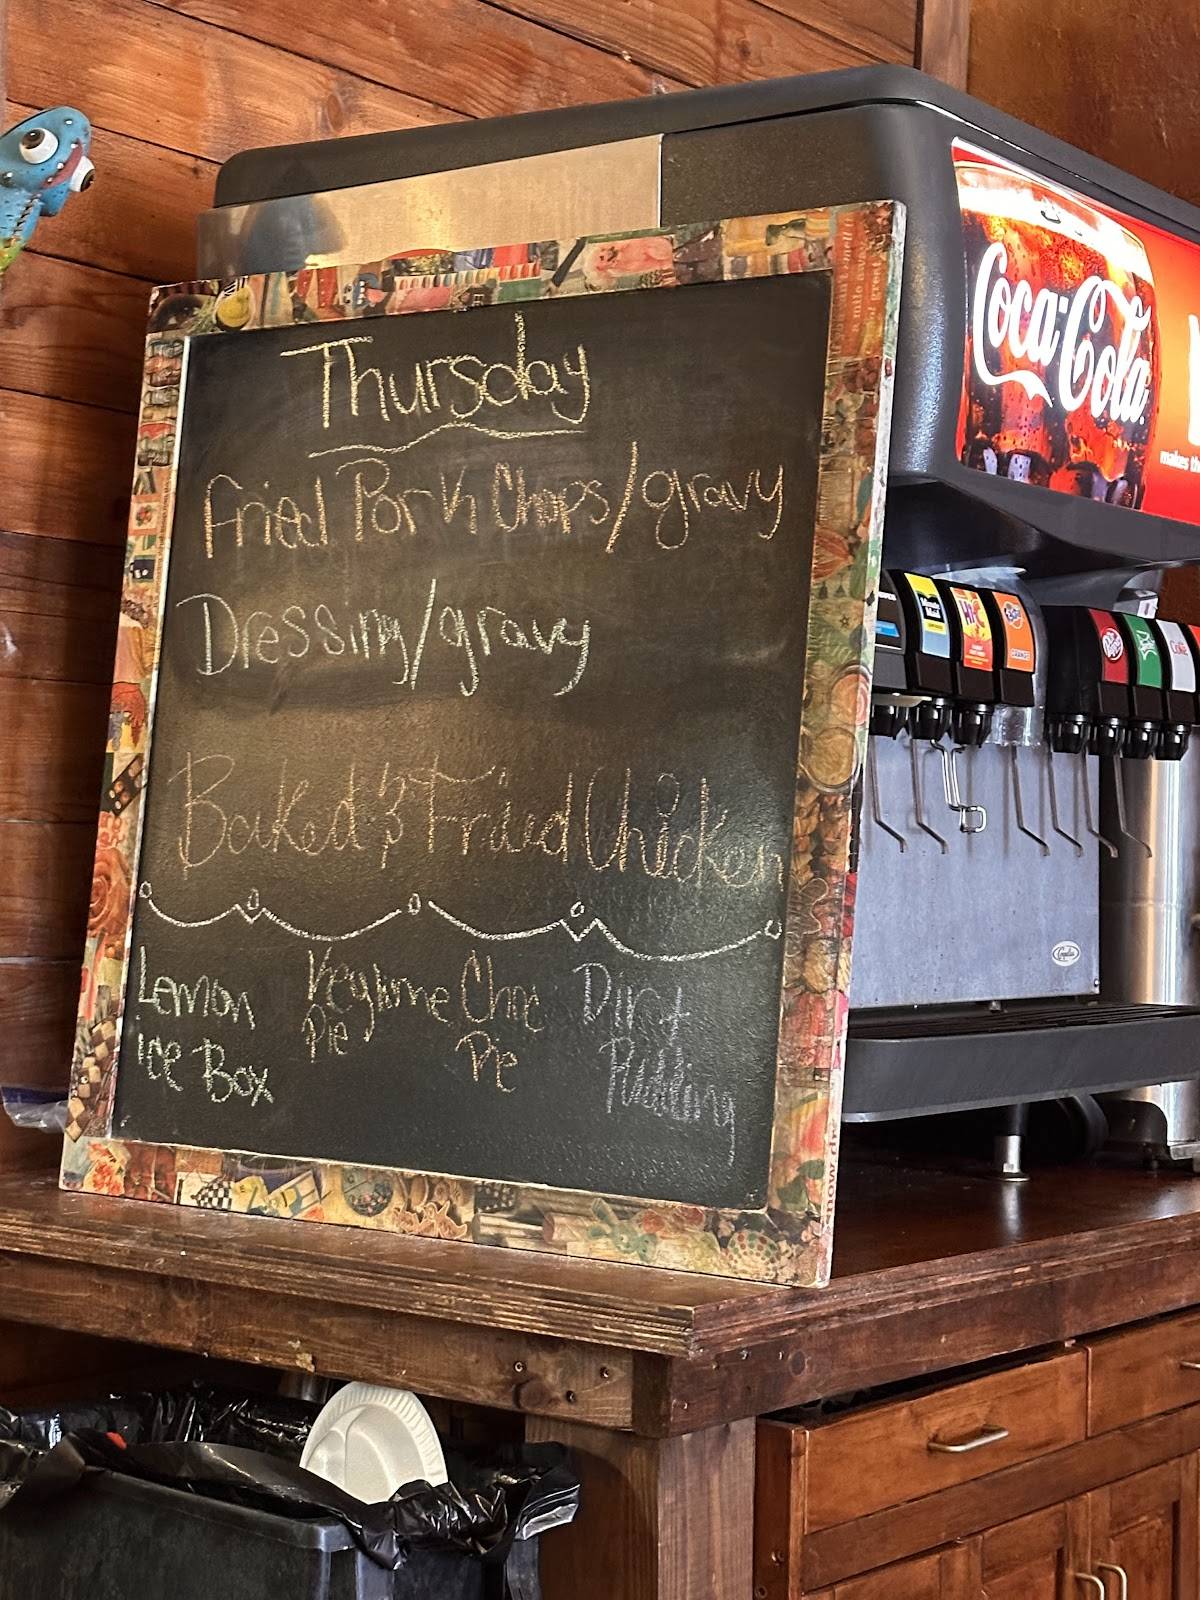 Thursday
Fried Pork Chops/gravy
Dressing/gravy
Baked & Fried Chicken
Lemon
Ice Box
Keylime
Pie
Choc
Pie
Dirt
Pudding
Coca-Cola
makes th
Hi-C
ORANGE
Dr Pepper
Sprite
Coke